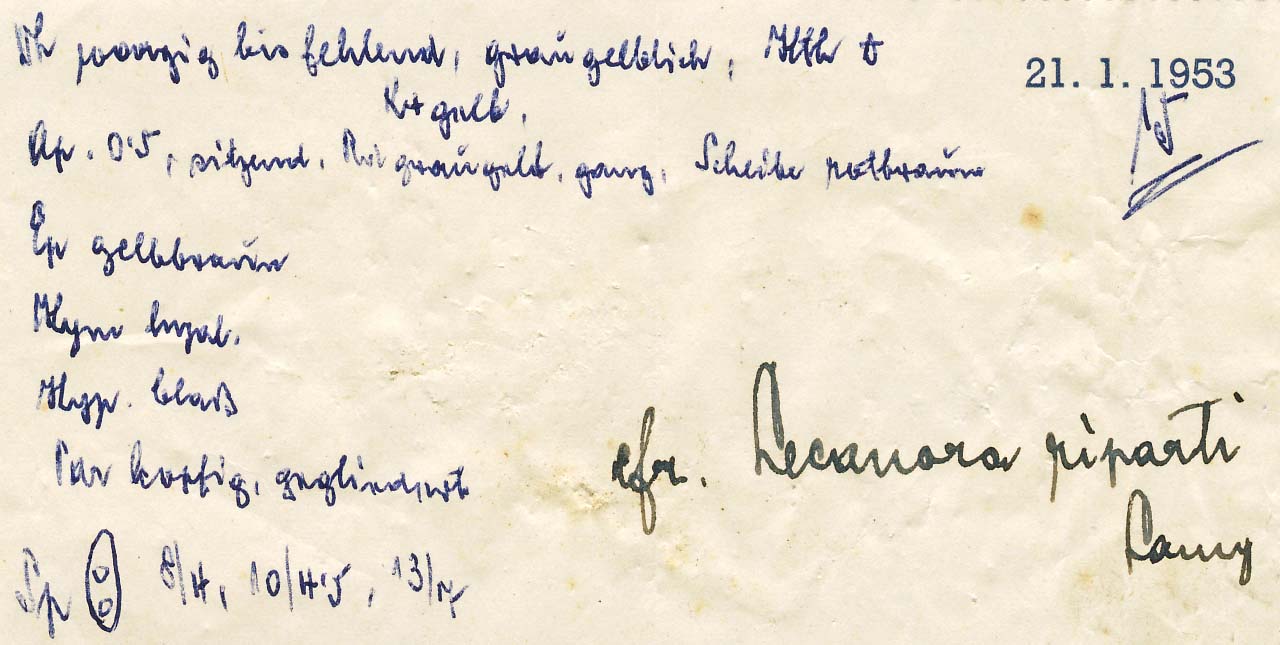 Th warzig bis fehlend, graugelblich, Hth
21. 1. 1953
K+ gelb.
Ap. 0'5, sitzend, graugelb, ganz, Scheibe rotbraun
Ep gelbbraun
Hym hyal.
Hyp. blaß
Par kopfig, gegliedert
cfr. Lecanora riparti
Lamy
Sp 8/4, 10/4'5, 13/4